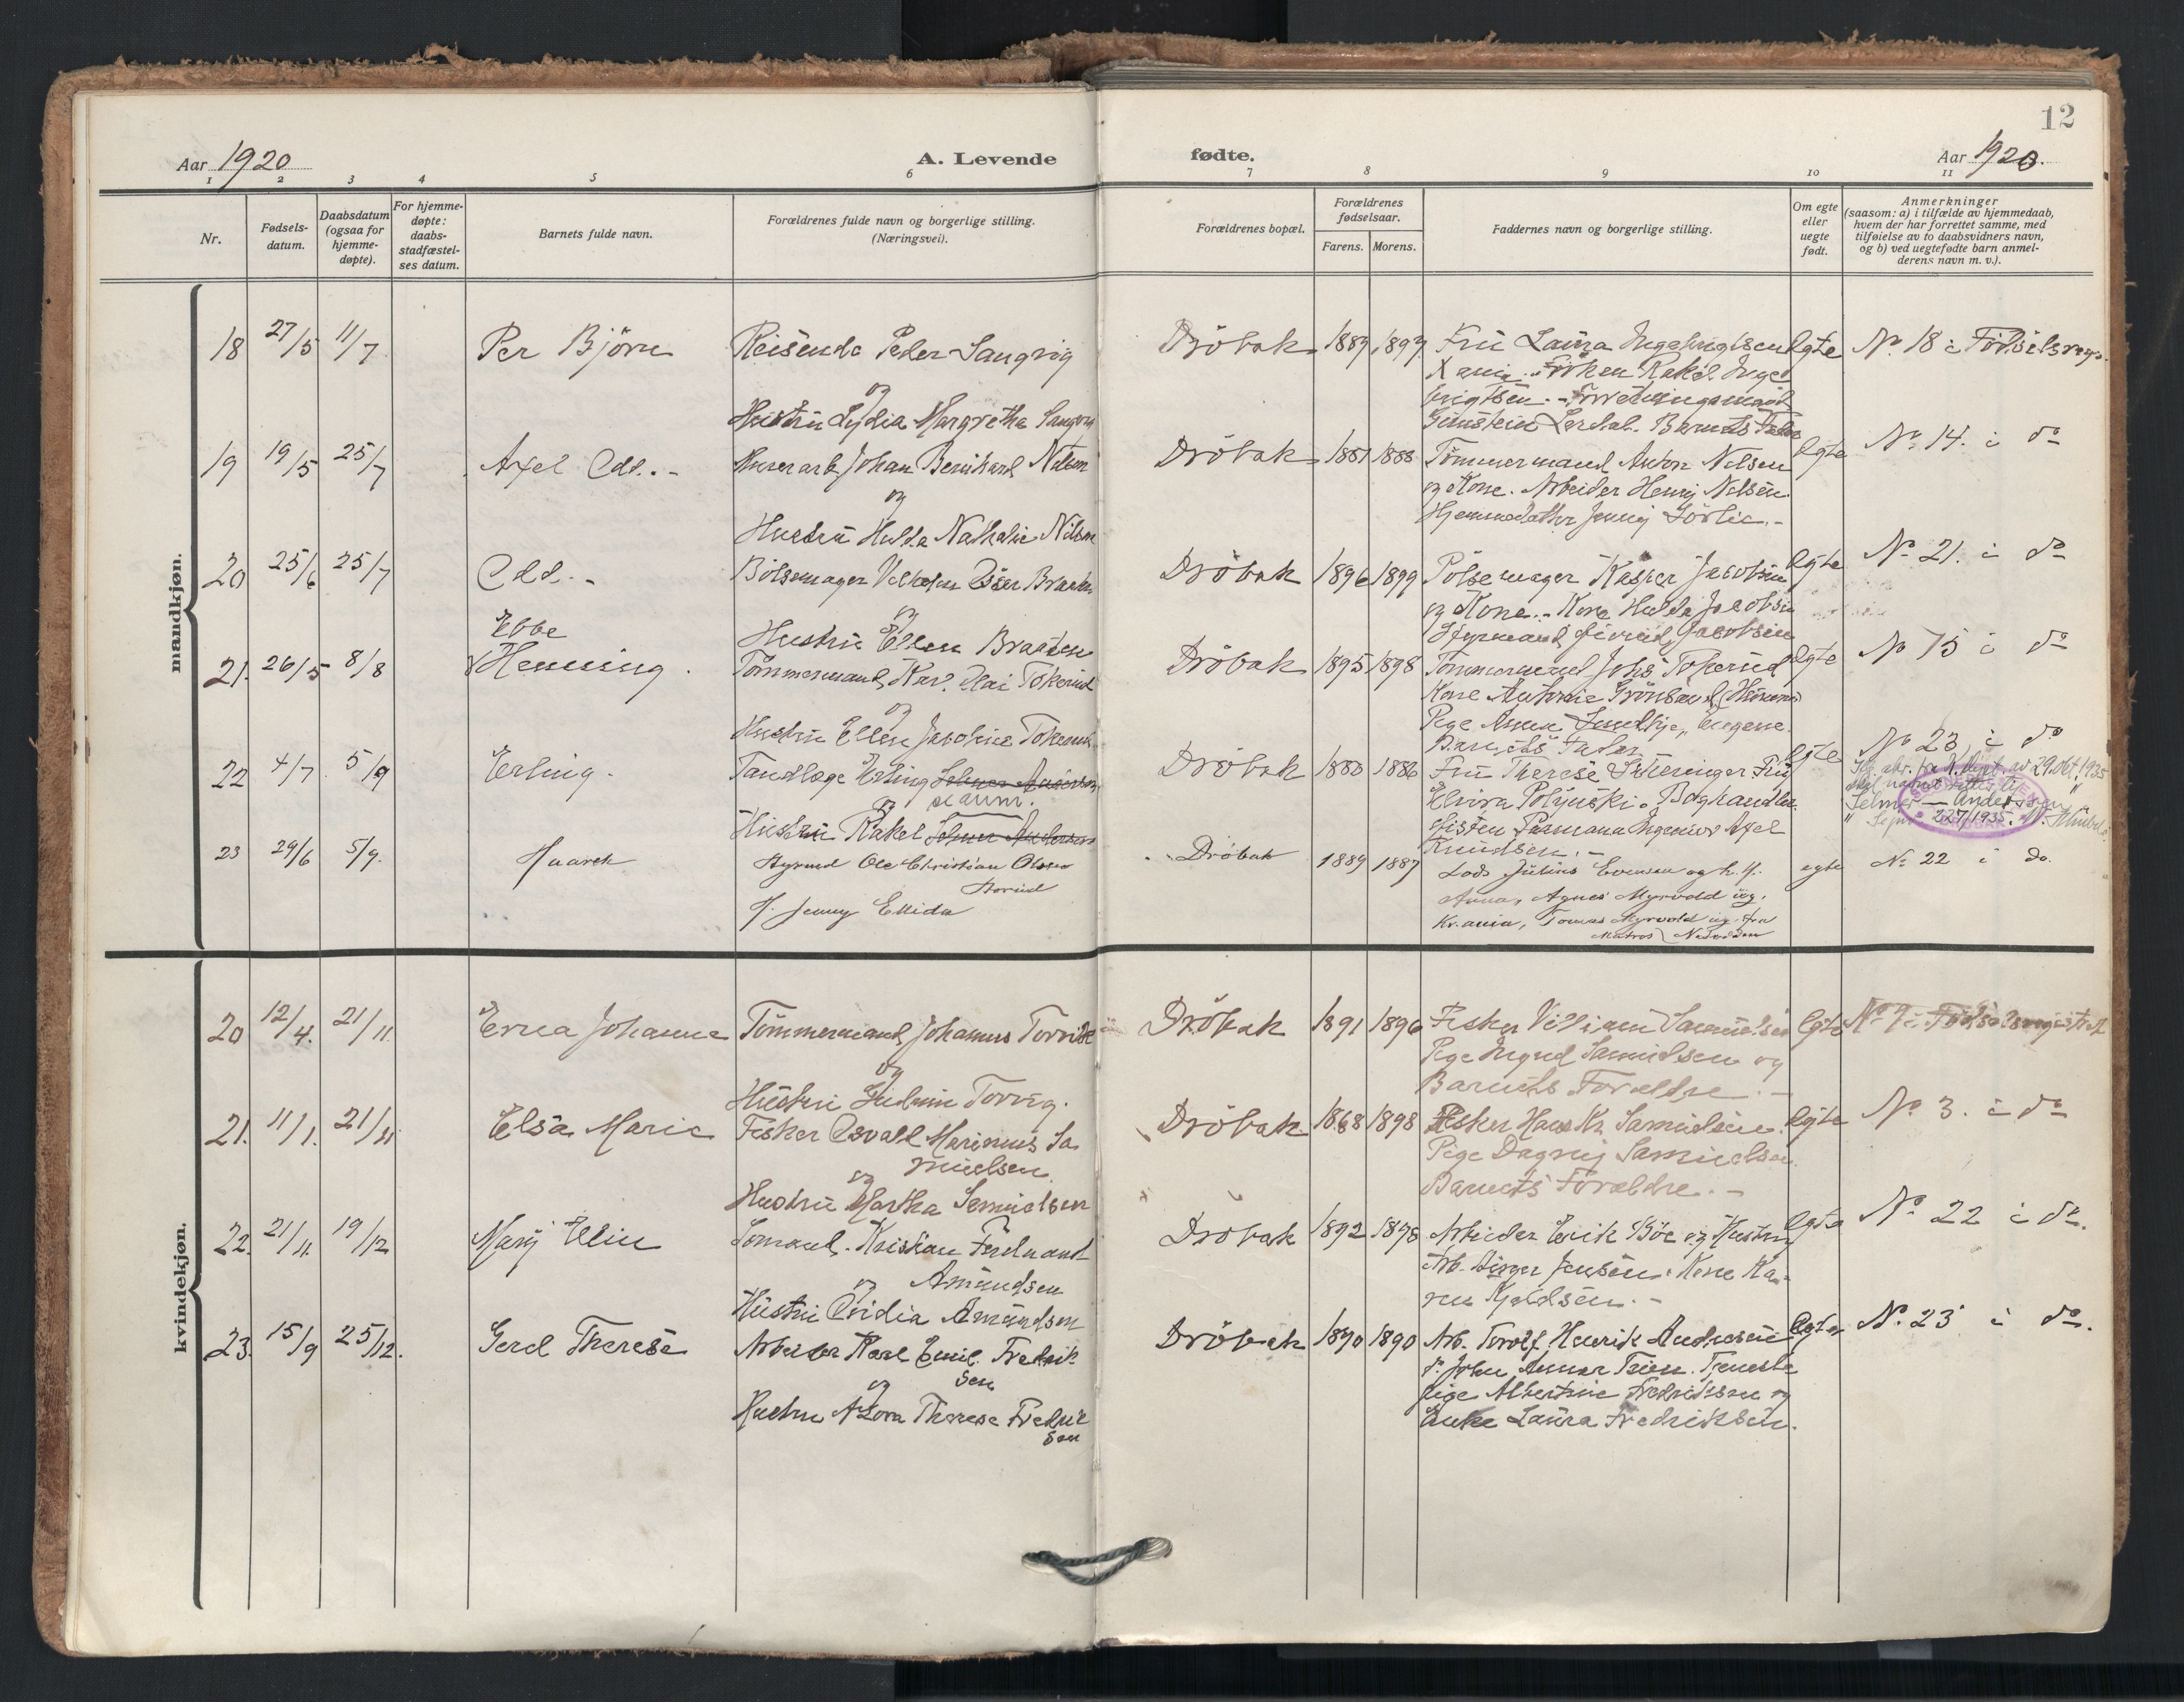 12
Aar 1920
A. Levende
fødte.
Aar 1920.
1 2 3 4 5 6 7 8 9 10 11
Nr.
Fødsels-
datum.
Daabsdatum
(ogsaa for
hjemme-
døpte).
For hjemme-
døpte:
daabs-
stadfæstel-
ses datum.
Barnets fulde navn.
Forældrenes fulde navn og borgerlige stilling.
(Næringsvei).
Forældrenes bopæl.
Forældrenes
fødselsaar.
Farens. Morens.
Faddernes navn og borgerlige stilling.
Om egte
eller
uegte
født.
Anmerkninger
(saasom: a) i tilfælde av hjemmedaab,
hvem der har forrettet samme, med
tilføielse av to daabsvidners navn,
og b) ved uegtefødte barn anmel-
derens navn m. v.).
mandkjøn.
18 27/5 11/7 Per Bjørn Reisende Peder Sangvig
og
Hustru Lydia Margretha
Dröbak 1889 Fru Laura Ingebrigtsen
Frøken Rakel Inge
brigtsen
Barnets Fader
egte No 18 i Fødselsreg.
19 19/5 25/7 Axel Odd. - Johan Bernhard Nilsen
og
Hustru Hulda Nathalie Nilsen
Dröbak 1881 1888 Tömmermand Anton Nilsen
og Kone. Arbeider Henry Nilsen.
Hjemmedatter Jenny
egte No 14. i do
20 25/6 25/7 Odd. -
og
Hustru Ellen Braaten
Dröbak 1896 1899 Pölsemager Kasper Jacobsen
og Kone. - Kone Hulda Jacobsen
Styrmand Jacobsen
egte No 21. i do
21. 26/5 8/8 Ebbe
Henning. Tömmermand Tokerud
og
Hustru Ellen Jacobine Tokerud
Dröbak 1895 1898 Tömmermand Johs Tokerud
Kone Antonie
Pige Anna
Barnets Fader
egte No 15 i do
22 4/7 5/9 Erling. Tandlæge Erling Selmer Andersen
og
Hustru Rakel Selmer Andersen
Dröbak 1880 1886 Fru Therese Fru
Elvira Boghandler
Ingeniør Axel
Knudsen. -
egte No 23 i do
av 29. okt. 1935
Selmer — Anderssen
227/1935.
23 29/6 5/9. Haarek Styrmd Ole Christian Olsen
H. Jenny Ellida
Dröbak 1889 1887 Lods Julius Evensen og h. H.
Anna, Agnes Myrvold ug.
Kr.ania, Tomas Myrvold ug. fra
Matros Nesodden
egte No 22 i do.
kvindekjøn.
20 12/4. 21/11. Erna Johanne Tömmermand Johannes
og
Hustru
Dröbak 1891 1896 Fisker Villiam Samuelsen
Pige Samuelsen og
Barnets Forældre. -
egte No 9 i Fødselsregistret
21. 11/1. 21/11 Elsa Marie Fisker Osvald Marinus Sa
muelsen
og
Hustru Martha Samuelsen
Dröbak 1868 1898 Fisker Hans Kr. Samuelsen
Pige Dagny Samuelsen.
Barnets Forældre. -
egte No 3. i do
22. 21/11. 19/12 Mary Elin Sömand. Kristian Ferdinand
Amundsen
og
Hustru Ovidia Amundsen
Dröbak 1892 1898 Arbeider Erik Böe og Hustru
Arb. Birger Jensen. Kone Ka-
ren Kjeldsen. -
egte No 22 i do.
23. 15/9 25/12. Gerd Therese Arbeider Karl Emil Fredrik
sen
og
Hustru Therese Fredrik
sen
Dröbak 1890 1890 Arb. Torolf Henrik Andresen
do John Tjeneste
pige Albertine Fredriksen og
Enke Laura Fredriksen.
egte No 23 i do.